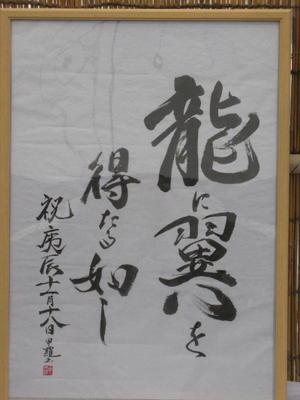 龍に翼を
得たる如し
祝庚辰十一月十八日